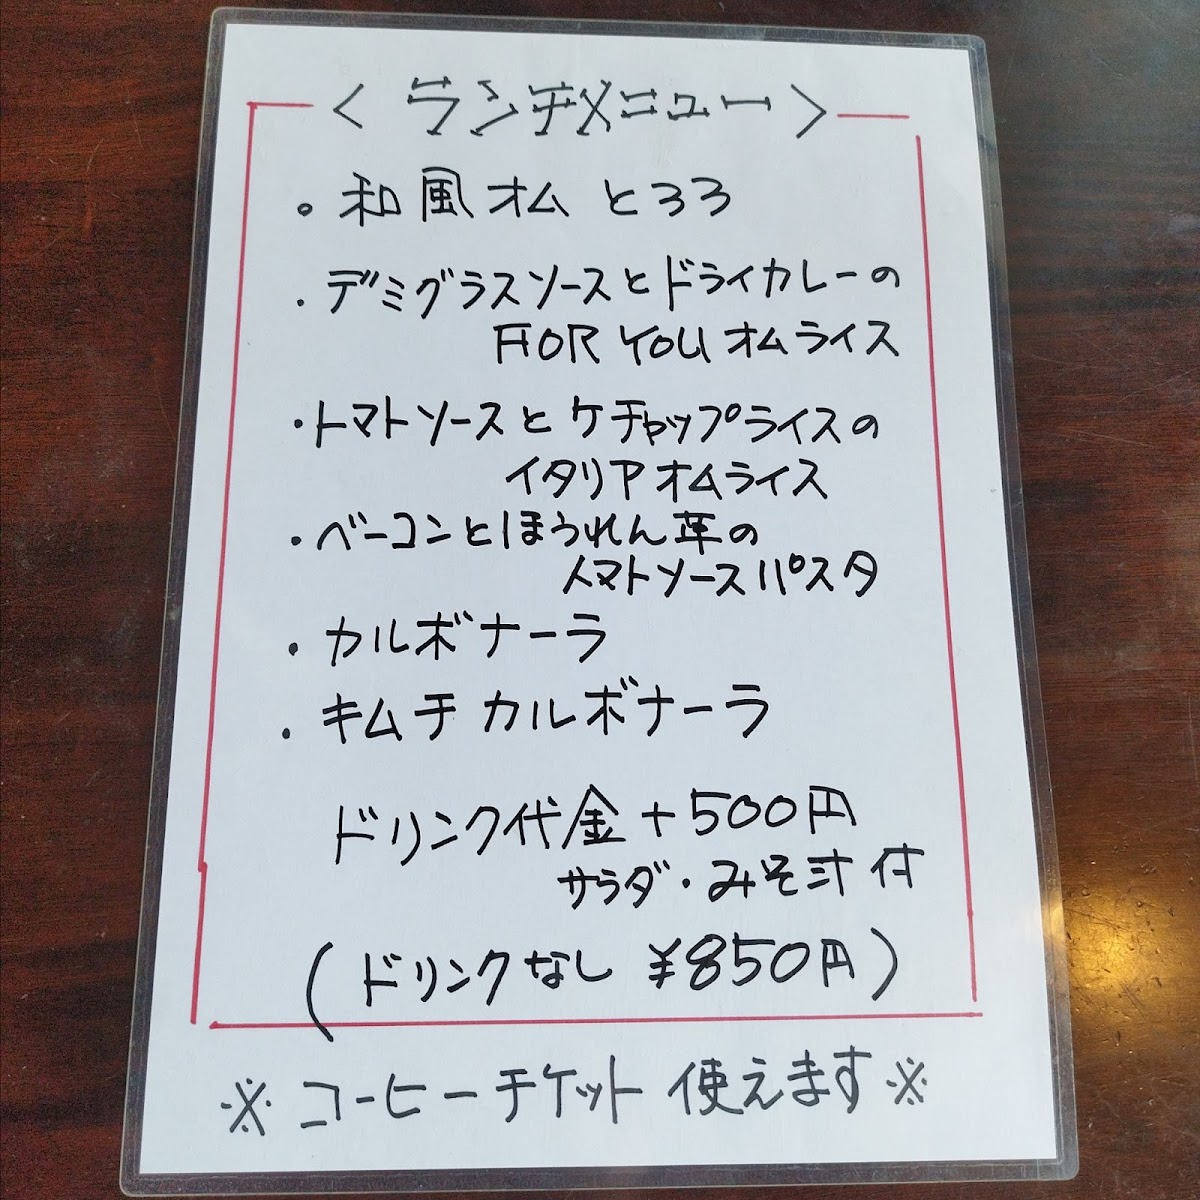 < ランチメニュー >
。和風オム とろろ
・デミグラスソースとドライカレーの
FOR YOU オムライス
・トマトソースとケチャップライスの
イタリアオムライス
・ベーコンとほうれん草の
トマトソースパスタ
・カルボナーラ
・キムチカルボナーラ
ドリンク代金+500円
サラダ・みそ汁付
(ドリンクなし ¥850円)
※コーヒーチケット使えます※